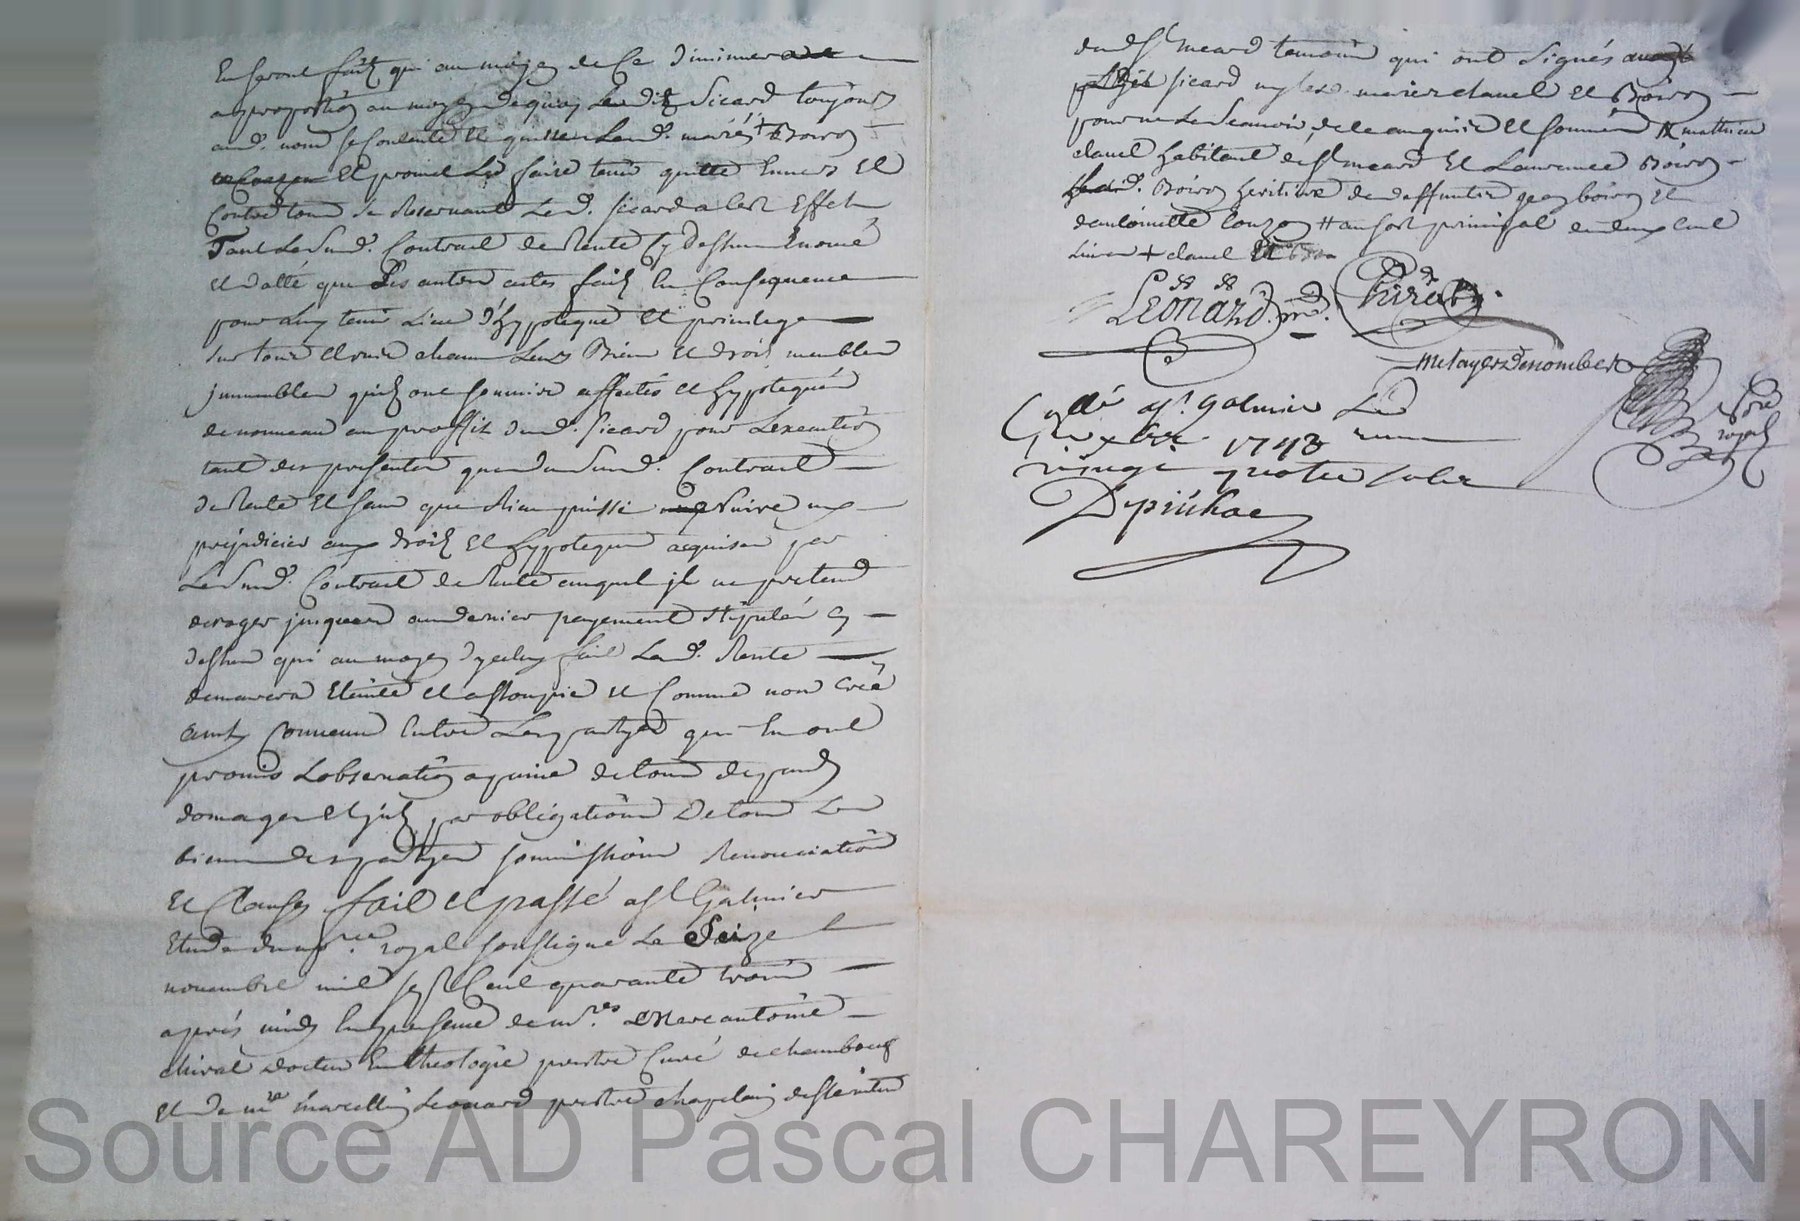 En seront faits qui au moyen de ce diminuera
a proportion au moyen de quoy ledit Sicard toujours
aud. nom se contente et quitte lesd. mariés + Boiron
et promet les faire tenir quitte envers et
contre tous se reservant led. Sicard a cest effet
Tant le susd. Contract de Rente cy dessus Enoncé
et datté que les autres actes faits en Consequence
pour luy tenir Lieu d'hypoteque et privilege
sur tous et un chacun Leurs Biens et droits meubles
jmmeubles quils ont soumis affectés et hypotequés
de nouveau au proffit dud. Sicard pour Lexecution
tant des presentes que du susd. Contract
de Rente Et sans que Rien puisse Nuire ny
prejudicier aux droits Et hypoteques acquises par
Le susd. Contract de Rente auquel jl ne pretend
deroger jusques au dernier payement stipulé cy
dessus qui au moyen dyceluy fait Lad. Rente
demeurera Eteinte et assoupie et Comme non créé
ainsy Convenu Entre Les partyes qui En ont
promis Lobservation a peine de tous depands
domages et jnts par obligations De tous Les
biens desd. partyes soumissions Renonciations
Et Clauses fait et passé a St Galmier
Etude du nore royal soussigné Le Seize
novembre mil sept Cent quarante trois
aprés midy En presence de mres Marc antoine
chirat docteur En theologie prestre Curé de chambeuf
Et de mre Marcellin Leonard prestre chapelain
dud. St meard temoins qui ont signés
Sicard ny les. mariez clavel Et Boiron
pour ne Le scavoir de ce enquis Et sommés # mathieu
clavel habitant de St meard Et Laurence Boiron
Boiron heritiere de deffunts Boiron et
dantoinette # au sort principal de deux cent
Livres + clavel
Leonard pre. Chirat Cu.
Metayer Denombret
Collé a St. Galmier Le
xbre 1743 reçu
vingt quatre sols
Depiéhac
nore
royal
Source AD Pascal CHAREYRON